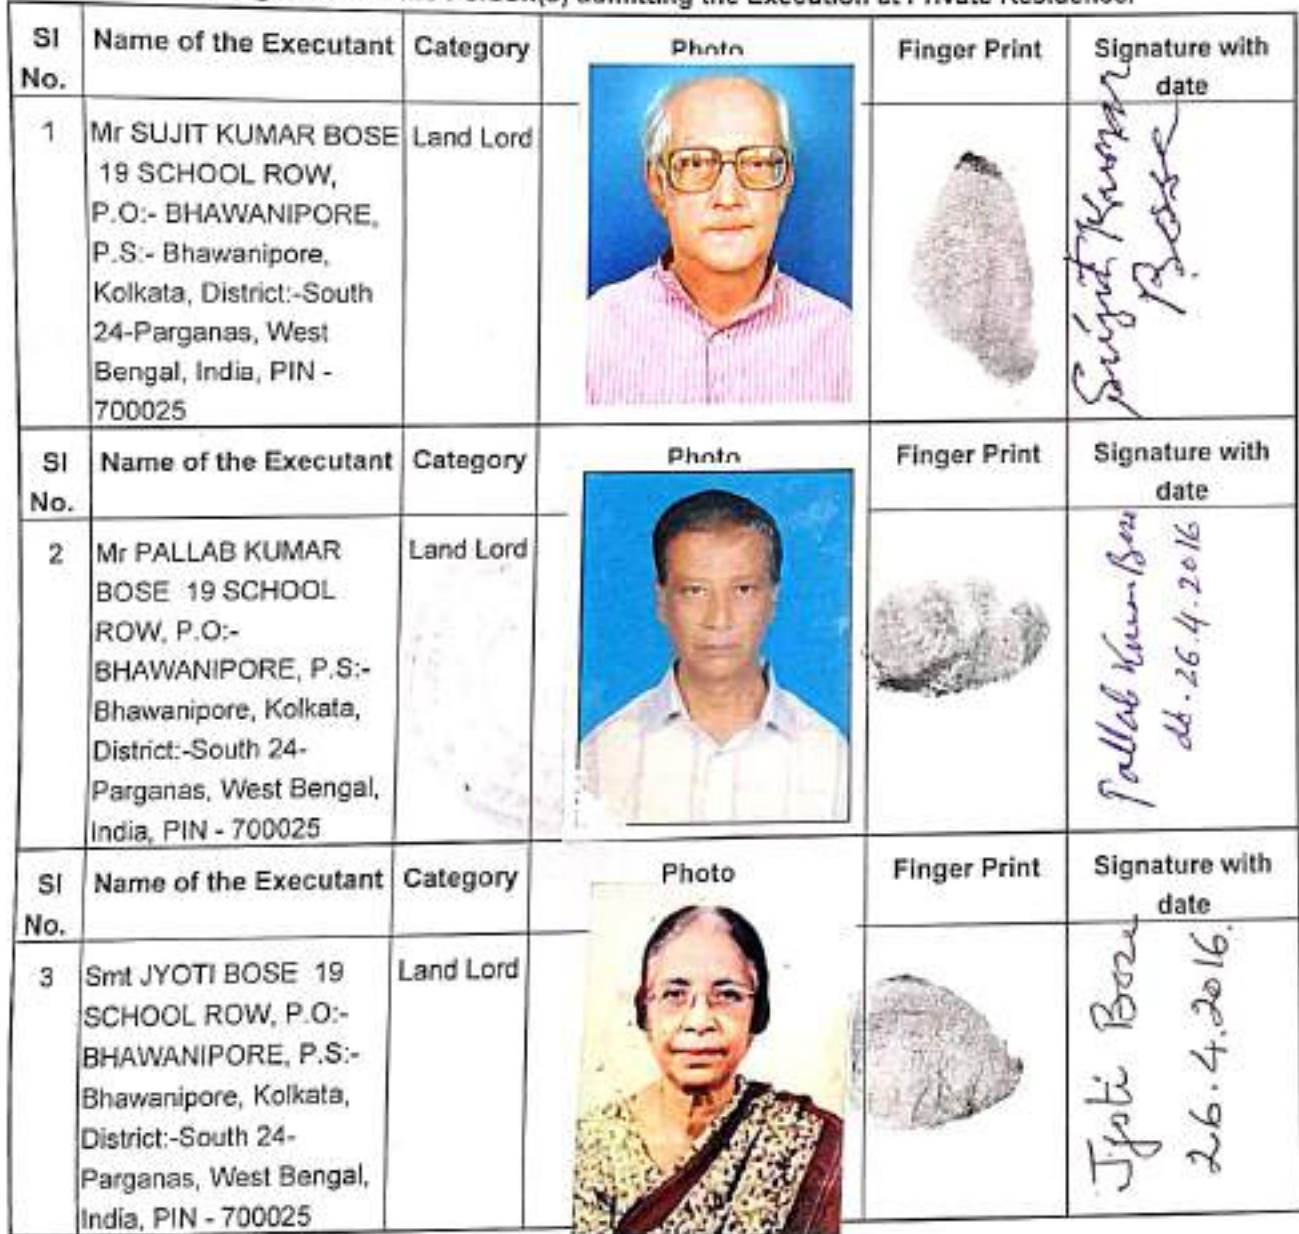 (s) admitting the Execution at Private Residence.
Sl No. Name of the Executant Category Photo Finger Print Signature with date
1 Mr SUJIT KUMAR BOSE Land Lord
19 SCHOOL ROW,
P.O:- BHAWANIPORE,
P.S:- Bhawanipore,
Kolkata, District:-South
24-Parganas, West
Bengal, India, PIN -
700025
Sujit Kumar
Bose
Sl No. Name of the Executant Category Photo Finger Print Signature with date
2 Mr PALLAB KUMAR Land Lord
BOSE 19 SCHOOL
ROW, P.O:-
BHAWANIPORE, P.S:-
Bhawanipore, Kolkata,
District:-South 24-
Parganas, West Bengal,
India, PIN - 700025
Pallab Kumar Bose
dt. 26.4.2016
Sl No. Name of the Executant Category Photo Finger Print Signature with date
3 Smt JYOTI BOSE 19 Land Lord
SCHOOL ROW, P.O:-
BHAWANIPORE, P.S:-
Bhawanipore, Kolkata,
District:-South 24-
Parganas, West Bengal,
India, PIN - 700025
Jyoti Bose
26.4.2016.